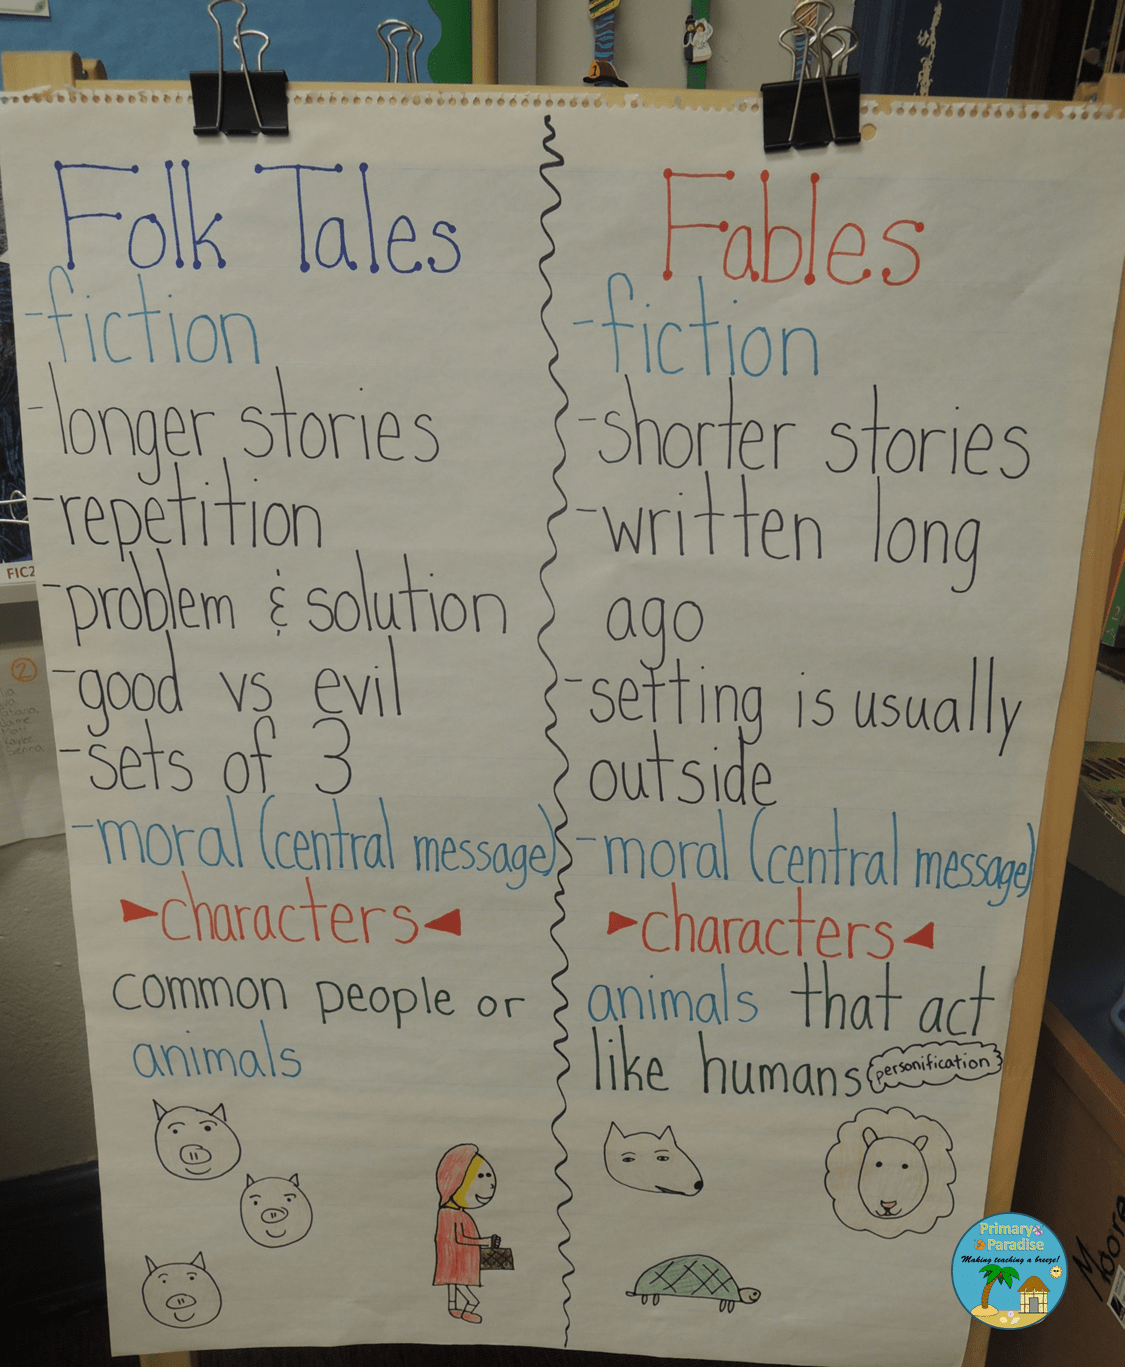 Folk Tales
-fiction
-longer stories
-repetition
-problem & solution
-good vs evil
-sets of 3
-moral (central message)
characters
common people or
animals
Fables
-fiction
-shorter stories
-written long
ago
-setting is usually
outside
-moral (central message)
characters
animals that act
like humans personification
FIC
2
Primary
Paradise
Making teaching a breeze!
Moore